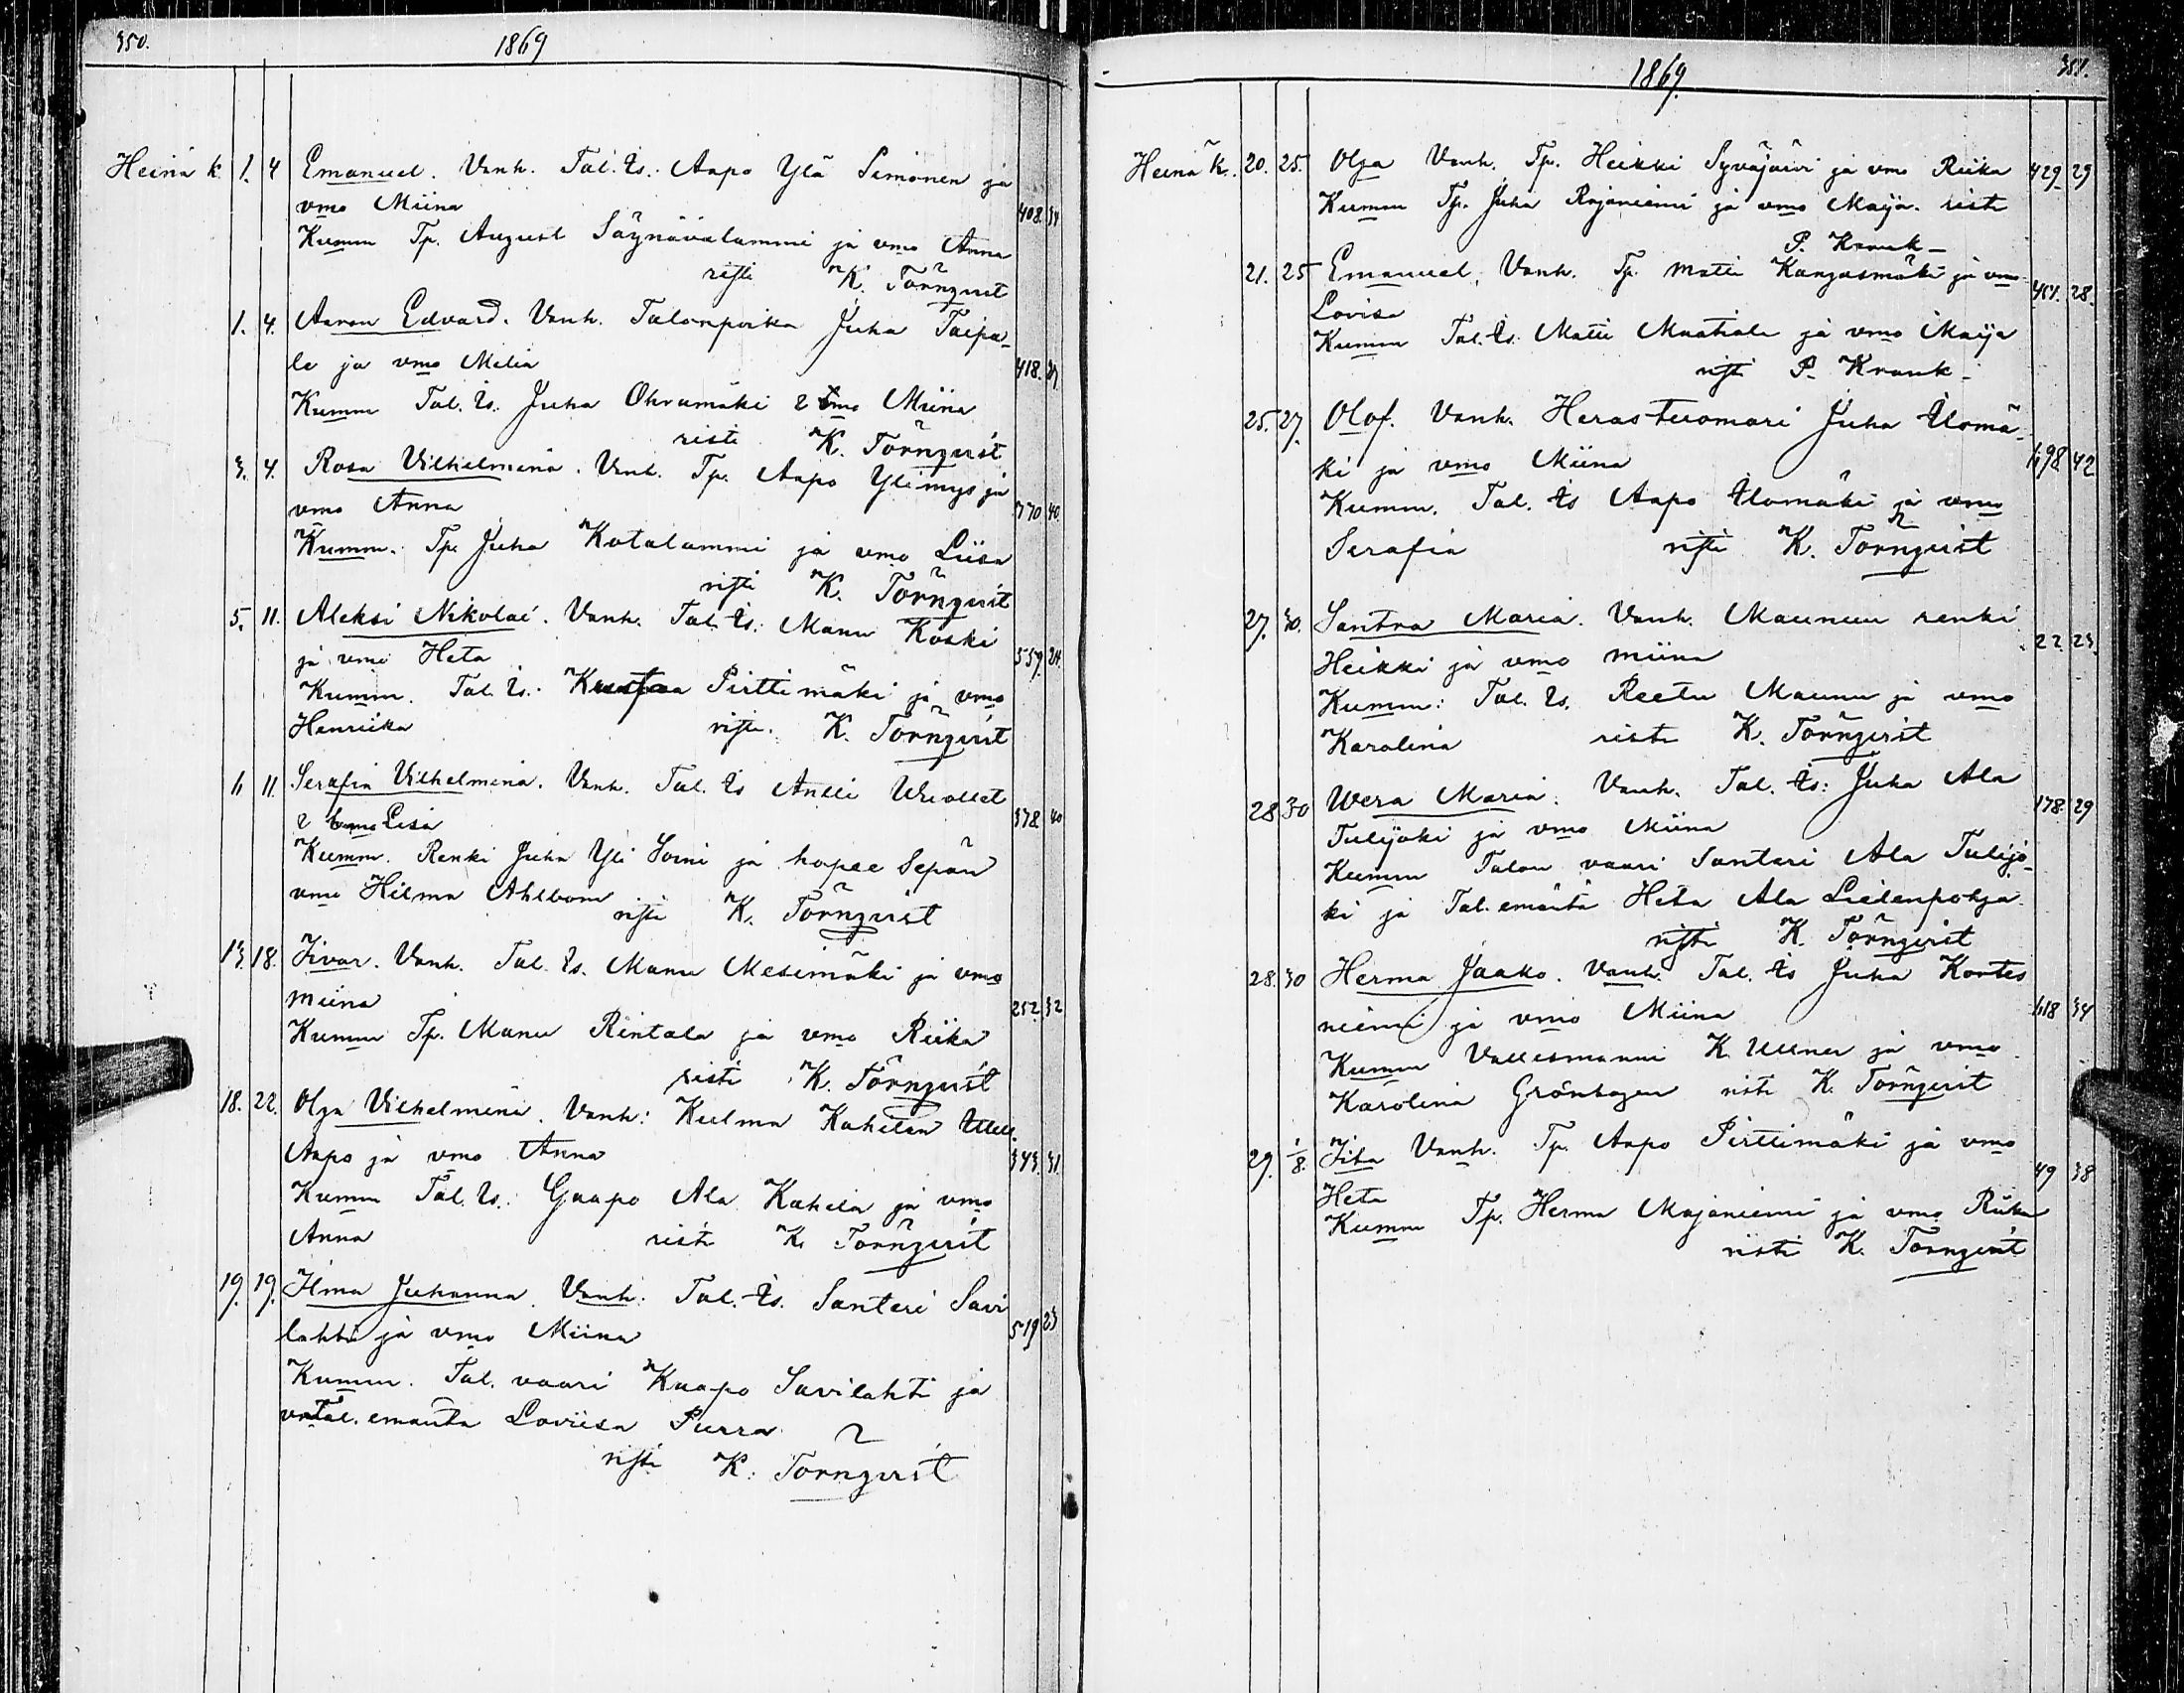 350.
1869
Heinä k. 1. 4 Emanuel. Vanh. Tal. Is. Aapo Ylä Simonen ja
vmo Miina 408. 34
Kumm Tp. August Säynävälummi ja vmo Anna
risti K. Törnqvist
1. 4. Aaron Edvard. Vanh. Talonpoika Juha Taipa-
le ja vmo Melia 418.
Kumm Tal. Is. Juha Ohramäki & vmo Miina
risti K. Törnqvist
3. 4. Rosa Vilhelmiina. Vanh. Tp. Aapo Ylimys ja
vmo Anna 370 40.
Kumm. Tp. Juha Katalammi ja vmo Liisa
risti K. Törnqvist
5. 11. Aleksi Nikolai. Vanh. Tal. Is. Manu Koski
ja vmo Heta 559. 24.
Kumm. Tal. Is. Kustaa Pirttimäki ja vmo
Henriika risti. K. Törnqvist
6 11. Serafia Vilhelmiina. Vanh. Tal. Is Antti
& vmo Lisa 378 40
Kumm. Renki Juha Yli Soini ja hopee Sepän
vmo Hilma Ahlbom risti K. Törnqvist
13. 18. Iivar. Vanh. Tal. Is. Manu Mesimäki ja vmo
Miina 252. 32
Kumm Tp. Manu Rintala ja vmo Riika
risti K. Törnqvist
18. 22. Olga Vilhelmiina. Vanh: Kulma Kahilan
Aapo ja vmo Anna 343. 31.
Kumm Tal. Is. Gaapo Ala Kahila ja vmo
Anna risti K. Törnqvist
19. 19. Ilma Juhanna. Vanh: Tal. Is. Santeri Savi
lahti ja vmo Miina 519 23
Kumm. Tal. vaari Kaapo Savilahti ja
Tal. emäntä Loviisa Purra
risti K. Törnqvist
1869.
351.
Heinä k. 20. 25. Olga Vanh. Tp. Heikki Syväjärvi ja vmo Riika 429 29
Kumm Tp. Juha Rajaniemi ja vmo Maija. risti
P. Krank
21. 25 Emanuel, Vanh. Tp. Matti Kangasmäki ja vmo
Lovisa 451. 28.
Kumm Tal. Is. Matti Maatiala ja vmo Maija
risti P. Krank
25. 27. Olof. Vanh. Herastuomari Juha Ulomä-
ki ja vmo Miina 498 42
Kumm. Tal. Is Aapo Ulomäki ja vmo
Serafia risti K. Törnqvist
27. 30. Santra Maria. Vanh. Maunun renki
Heikki ja vmo Miina 22. 23.
Kumm: Tal. Is. Reetu Maunu ja vmo
Karolina risti K. Törnqvist
28 30 Wera Maria. Vanh. Tal. Is: Juha Ala
Tulijoki ja vmo Miina 178. 29
Kumm Talon vaari Santeri Ala Tulijo-
ki ja Tal. emäntä Heta Ala Liedenpohja
risti K. Törnqvist
28. 30 Herma Jaako. Vanh. Tal. Is Juha Kortes
niemi ja vmo Miina 34
Kumm Vallesmanni K. Ullner ja vmo
Karolina Grönhagen risti K. Törnqvist
29. 1/8. Iita Vanh. Tp. Aapo Pirttimäki ja vmo
Heta 49 38
Kumm Tp. Herma Majaniemi ja vmo Riika
risti K. Törnqvist